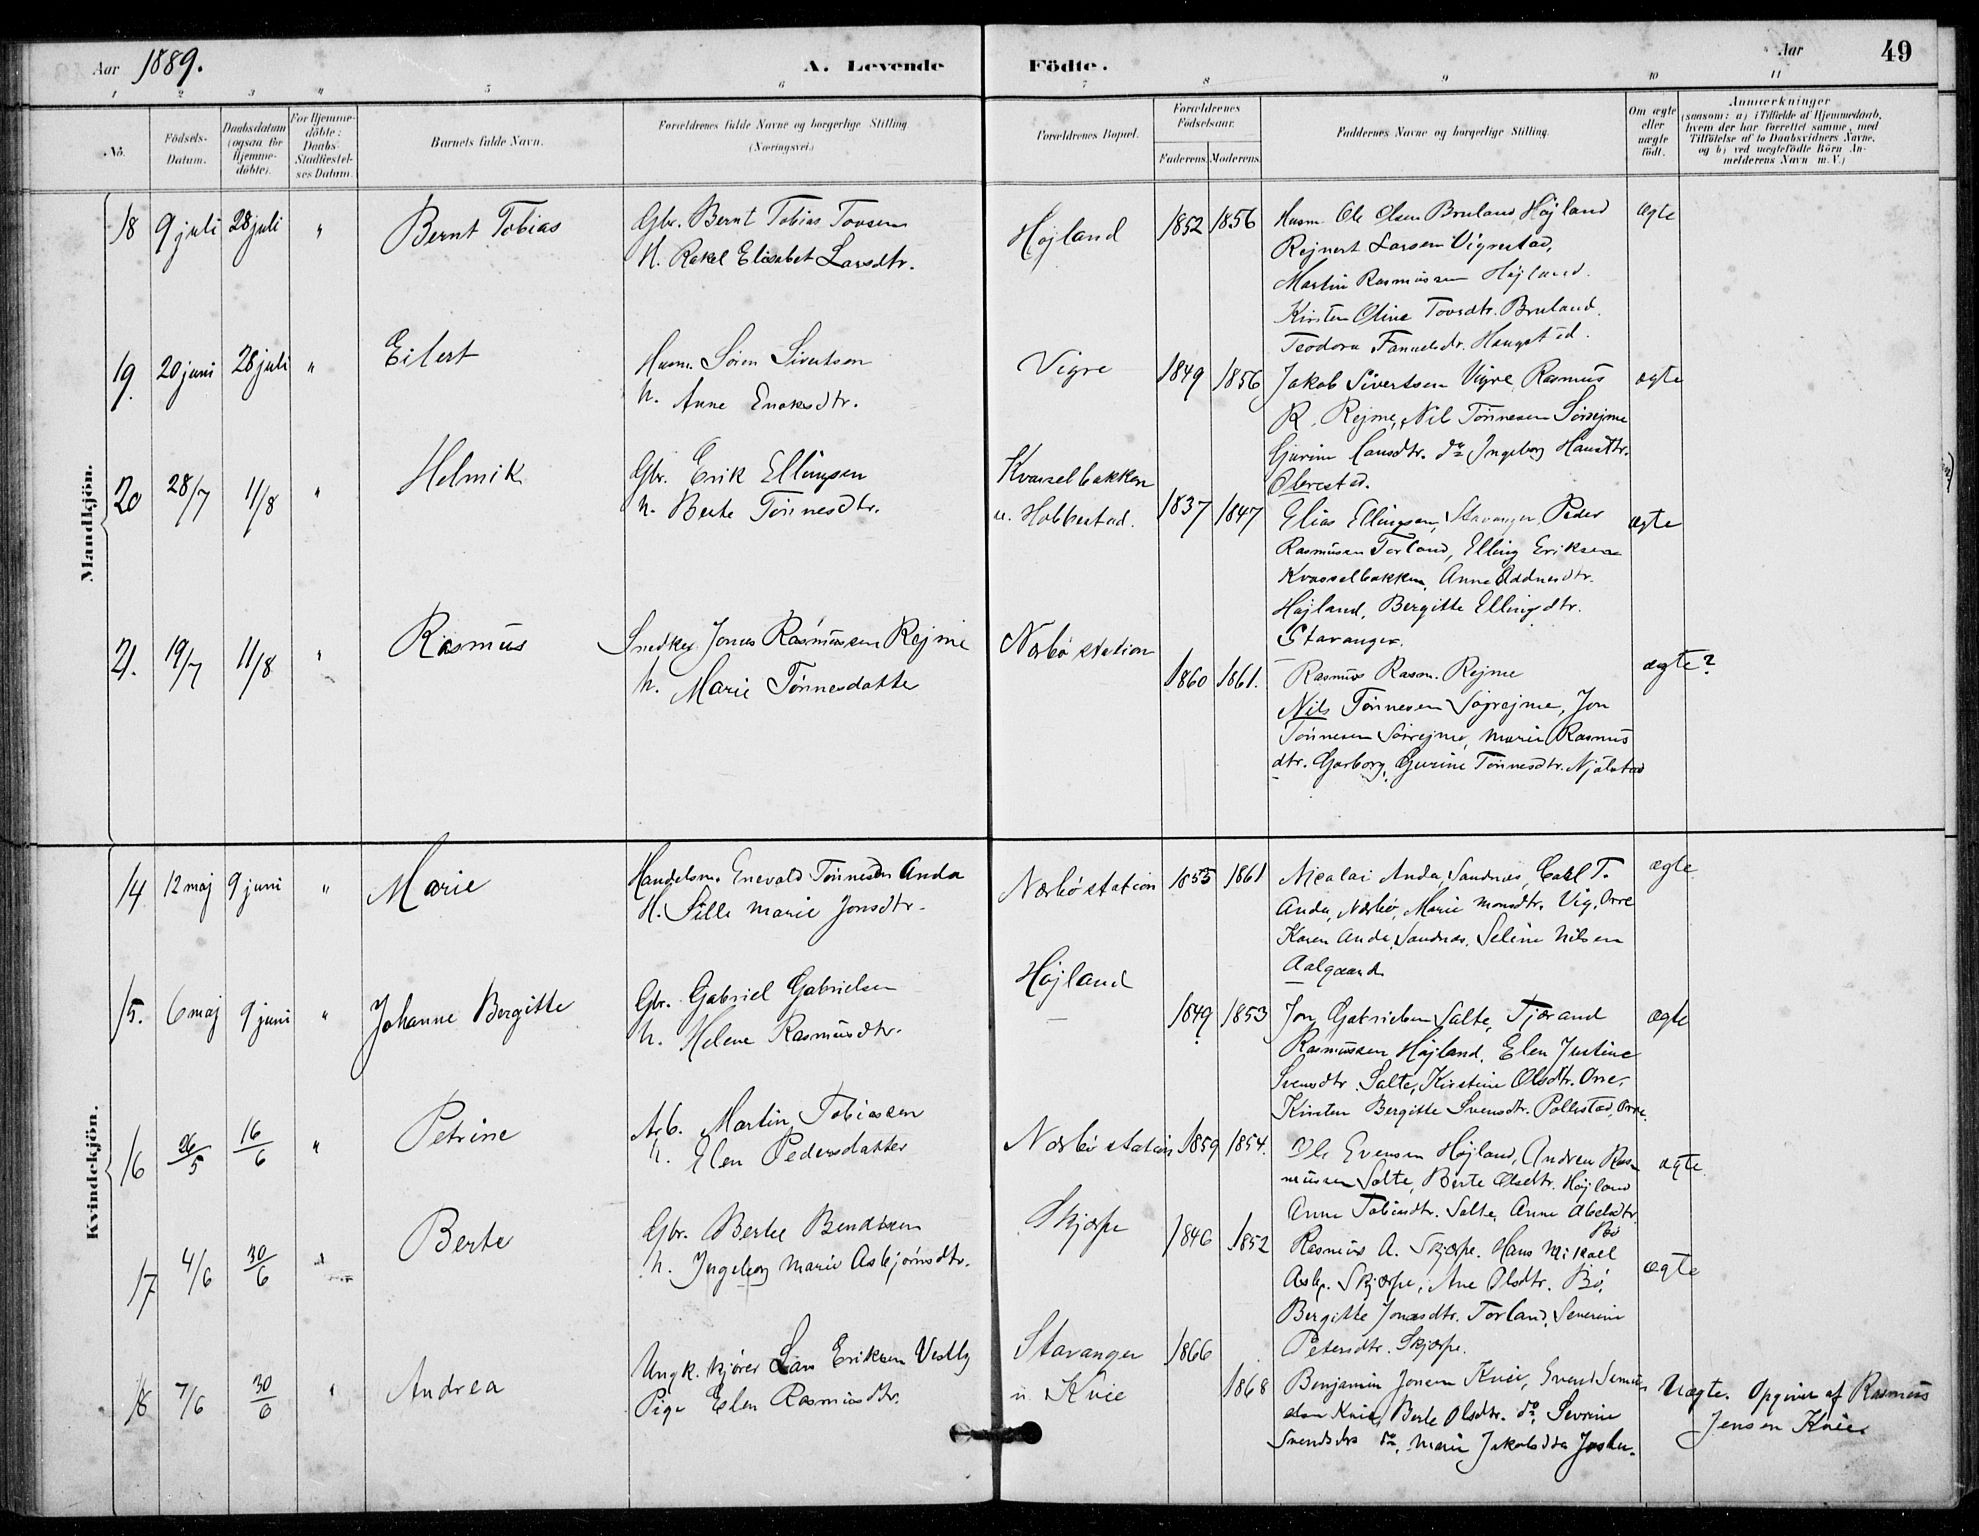 Aar 1889.
A. Levende Födte.
Aar
49
1 2 3 4 5 6 7 8 9 10 11
No.
Födsels-Datum.
Daabsdatum (ogsaa for Hjemme-döbte).
For Hjemme-döbte: Daabs-Stadfæstel-ses Datum.
Barnets fulde Navn.
Forældrenes fulde Navne og borgerlige Stilling (Næringsvei.)
Forældrenes Bopæl.
Forældrenes Födselsaar.
Faderens. Moderens.
Faddernes Navne og borgerlige Stilling.
Om ægte eller uægte födt.
Anmærkninger
(saasom: a) i Tilfælde af Hjemmedaab,
hvem der har forrettet samme, med
Tilföielse af to Daabsvidners Navne,
og b) ved uægtefödte Börn An-
melderens Navn m. V.)
Mandkjön.
18 9 juli 28 juli " Bernt Tobias
Gbr. Bernt Tobias Tovsen
H. Rakel Elisabet Larsdtr.
Højland 1852 1856
Husm. Ole Olsen Bruland, Højland
Rejnert Larsen Vigrestad,
Martin Rasmussen Højland.
Kirsten Oline Tovsdtr. Bruland.
Teodora
ægte
19. 20 juni 28 juli " Eilert
Husm. Sören Sivertsen
h. Anne Enoksdtr.
Vigre 1849 1856
Jakob Sivertsen Vigre, Rasmus
R. Rejme, Nil Tönnesen Sörrejme
Gurine Hansdtr. do Ingeborg Hansdtr.
Obrestad.
ægte
20 28/7 11/8 " Helmik
Gbr. Erik Ellingsen
h. Berte Tönnesdtr.
Kvasselbakken
u. Hobberstad. 1837 1847
Elias Ellingsen, Stavanger, Peder
Rasmusen Torland, Elling Eriksen
Kvasselbakken, Anne Oddnesdtr.
Højland, Bergitte Ellingsdtr.
Stavanger.
ægte
21. 19/7 11/8 " Rasmus
Snedker Jonas Rasmussen Rejme
h. Marie Tönnesdatter
Nærbö station 1860 1861.
Rasmus Rasm. Rejme
Nils Tönnesen Sörrejme, Jon
Tönnesen Sörrejme, Marie Rasmus
dtr. Garborg, Gurine Tönnesdtr. Njølstad
ægte?
Kvindekjön.
14 12 maj 9 juni " Marie
Handelsm. Enevald Tönnesen Anda
H. Sille Marie Jonsdtr.
Nærbö station 1855 1861
Nicolai Anda, Sandnæs, Carl T.
Anda, Nærbö, Marie Monsdtr. Vig, Orre
Karen Anda, Sandnæs, Seline Nilsen
Aalgaard
ægte
15. 6 maj 9 juni " Johanne Bergitte
Gbr. Gabriel Gabrielsen
h. Helene Rasmusdtr.
Højland 1849 1853
Jon Gabrielsen Salte, Tjærand
Rasmussen Højland, Elen Justine
Svensdtr. Salte, Kirstine Olsdtr. Orre,
Kirsten Bergitte Svensdtr. Pollestad, Orre.
ægte
16 26/5 16/6 " Petrine
Arb. Martin Tobiassen
h. Elen Pedersdatter
Nærbö station 1859 1854.
Ole Evensen Højland, Andreas Ras-
mussen Salte, Berte Olsdtr. Højland
Anne Tobiasdtr. Salte, Anne Abelsdtr.
Bö
ægte.
17 4/6 30/6 " Berte
Gbr. Bertel Bendixen
h. Ingeborg Marie Asbjørnsdtr.
Skjærpe 1846 1852
Rasmus A. Skjærpe, Hans Mikael
Asbj. Skjærpe, Ane Olsdtr. Bö,
Bergitte Jonasdtr. Torland, Severine
Petersdtr. Skjærpe.
ægte
18 7/6 30/6 " Andrea
Ungk. kjører Lars Eriksen Vestly
Pige Elen Rasmusdtr.
Stavanger 1866
u Kvie 1868
Benjamin Jonsen Kvie, Svend
Kvie, Berte Olsdtr. do, Sevrine
Svendsdtr do, Marie Jakobsdtr
Uægte. Opgiver af Rasmus
Jensen Kvie